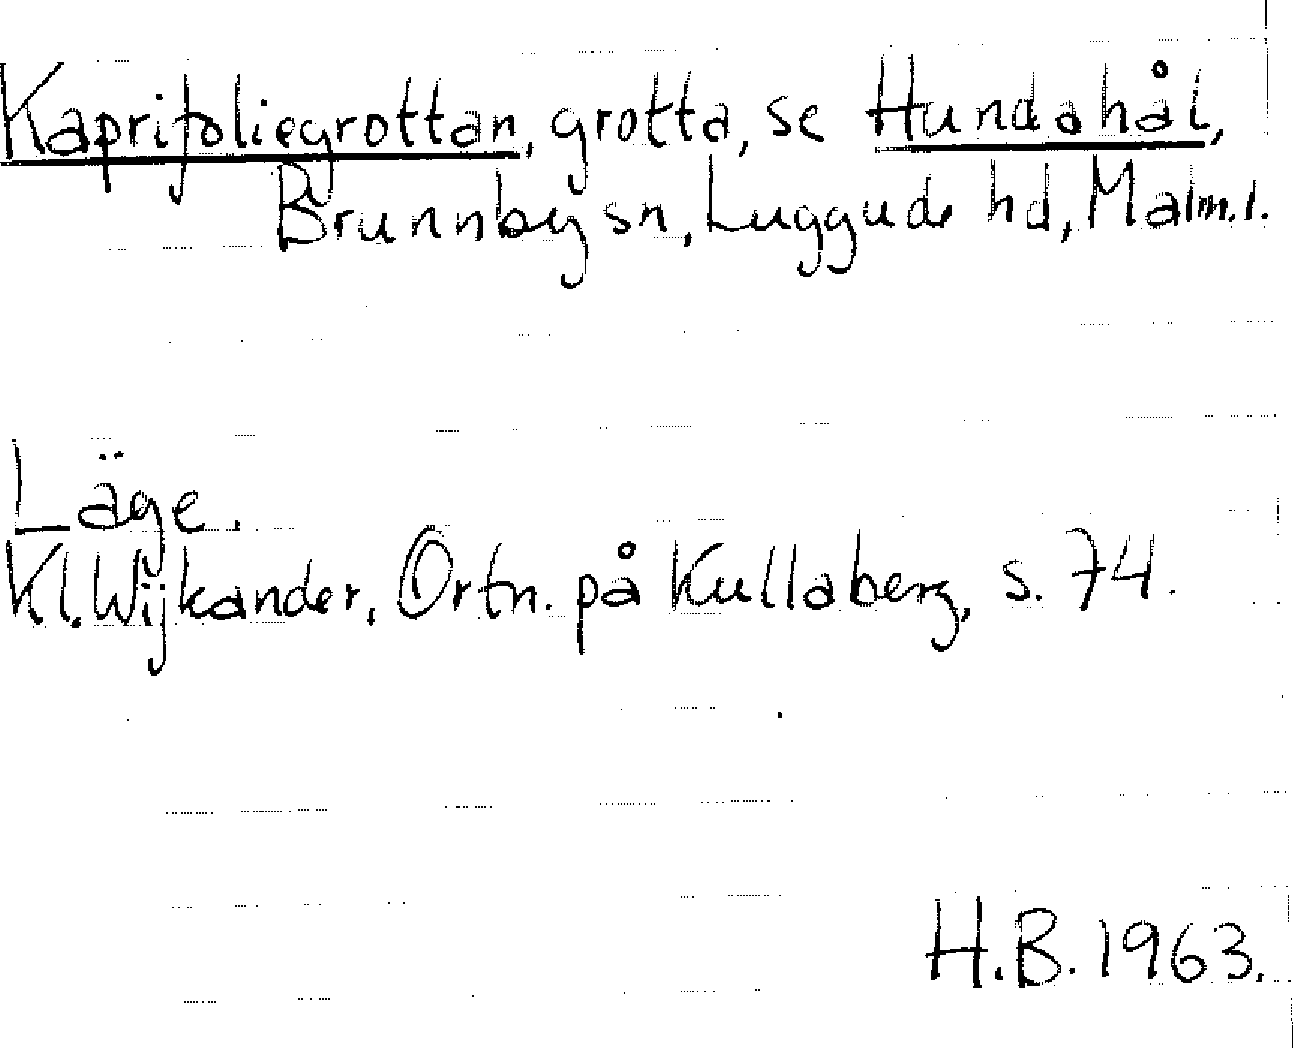 Kaprifoliegrottan, grotta, se Hundahål,
Brunnby sn, Luggude hd, Malm.l.
Läge.
K.l. Wijkander, Ortn. på Kullaberg, s. 74.
H.B. 1963.